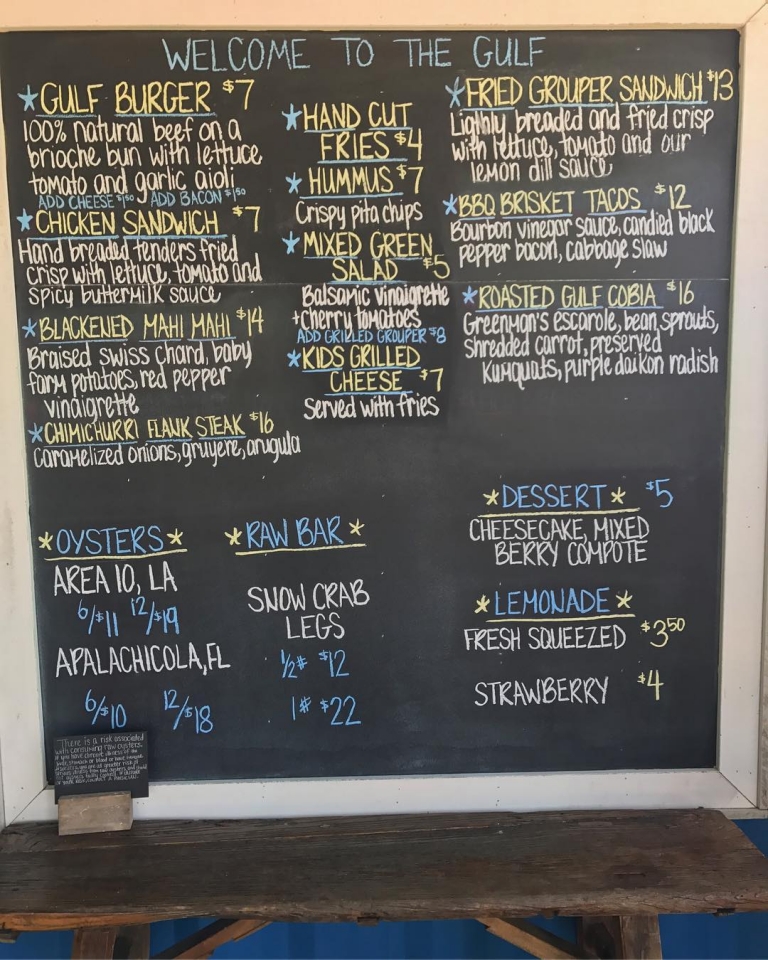 WELCOME TO THE GULF
*GULF BURGER $7
100% natural beef on a
brioche bun with lettuce
tomato and garlic aioli
ADD CHEESE $1.50 ADD BACON $1.50
*CHICKEN SANDWICH $7
Hand breaded tenders fried
crisp with lettuce, tomato and
spicy buttermilk sauce
*BLACKENED MAHI MAHI $14
Braised swiss chard, baby
farm potatoes, red pepper
vinaigrette
*CHIMICHURRI FLANK STEAK $16
Caramelized onions, gruyere, arugula
*HAND CUT
FRIES $4
*HUMMUS $7
Crispy pita chips
*MIXED GREEN
SALAD $5
Balsamic vinaigrette
+cherry tomatoes
ADD GRILLED GROUPER $8
*KIDS GRILLED
CHEESE $7
Served with fries
*FRIED GROUPER SANDWICH $13
Lightly breaded and fried crisp
with lettuce, tomato and our
lemon dill sauce
*BBQ BRISKET TACOS $12
Bourbon vinegar sauce, candied black
pepper bacon, cabbage slaw
*ROASTED GULF COBIA $16
Greenman's escarole, bean sprouts,
shredded carrot, preserved
Kumquats, purple daikon radish
*OYSTERS*
AREA 10, LA
6/$11 12/$19
APALACHICOLA, FL
6/$10 12/$18
*RAW BAR*
SNOW CRAB
LEGS
1/2# $12
1# $22
*DESSERT* $5
CHEESECAKE, MIXED
BERRY COMPOTE
*LEMONADE*
FRESH SQUEEZED $3.50
STRAWBERRY $4
There is a risk associated
with consuming raw oysters.